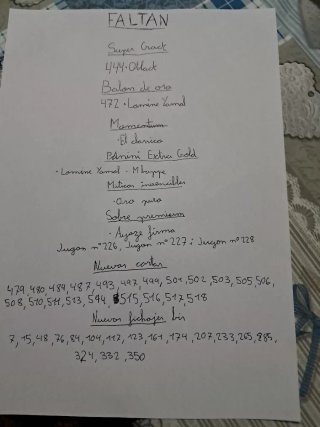 FALTAN
Super Crack
444 · Oblack
Balon de oro
472 · Lamine Yamal
Momentum
· El clasico
Panini Extra Gold
· Lamine Yamal - Mbappe
Miticos invencibles
· Oro puro
Sobre premium
· Ayoze firma
Jugon nº 226, Jugon nº 227 i Jugon nº 228
Nuevas cartas
479, 480, 484, 487, 493, 497, 499, 501, 502, 503, 505, 506,
508, 510, 511, 513, 514, 515, 516, 517, 518
Nuevos fichajes bis
7, 15, 48, 76, 84, 104, 112, 123, 161, 174, 207, 233, 265, 285,
324, 332, 350